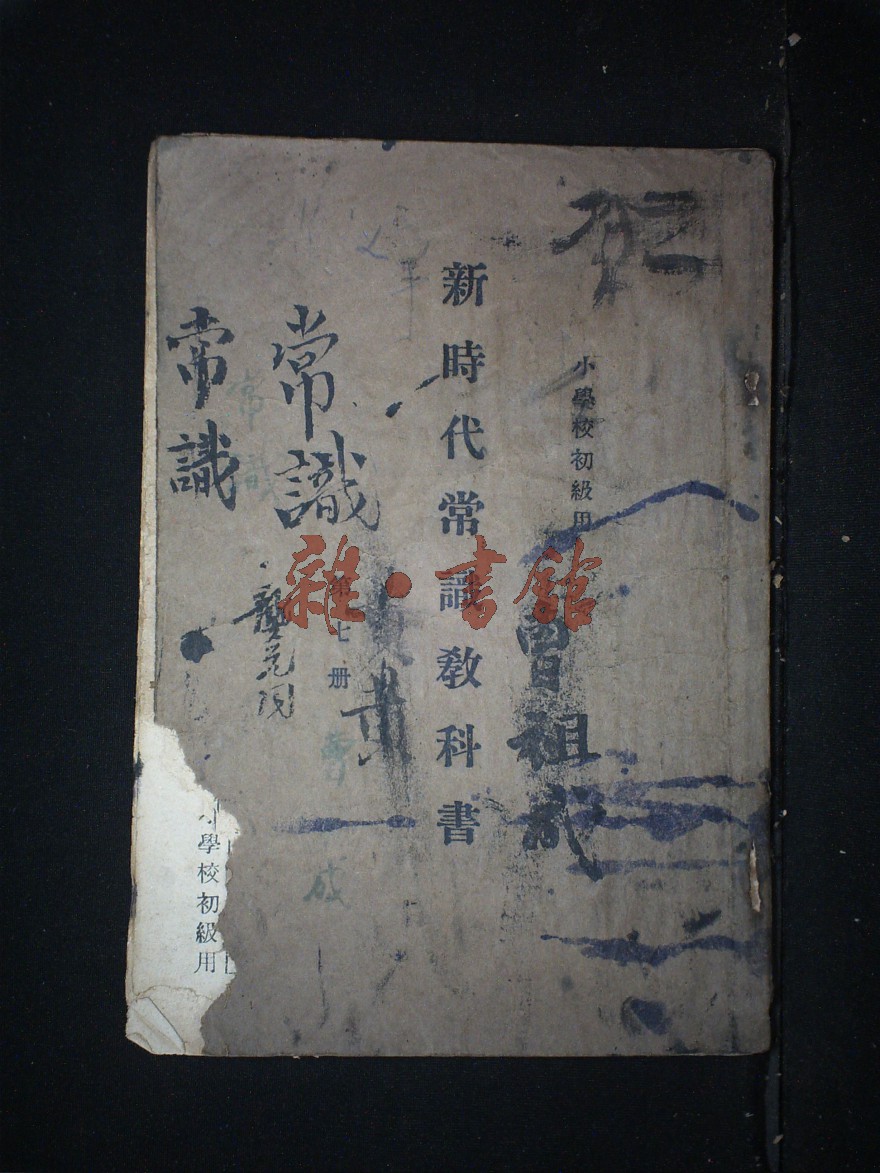 小學校初級用
曹祖成
新時代常識教科書
第七册
常識
常識
常識
曹
成
小學校初級用
雜·書館